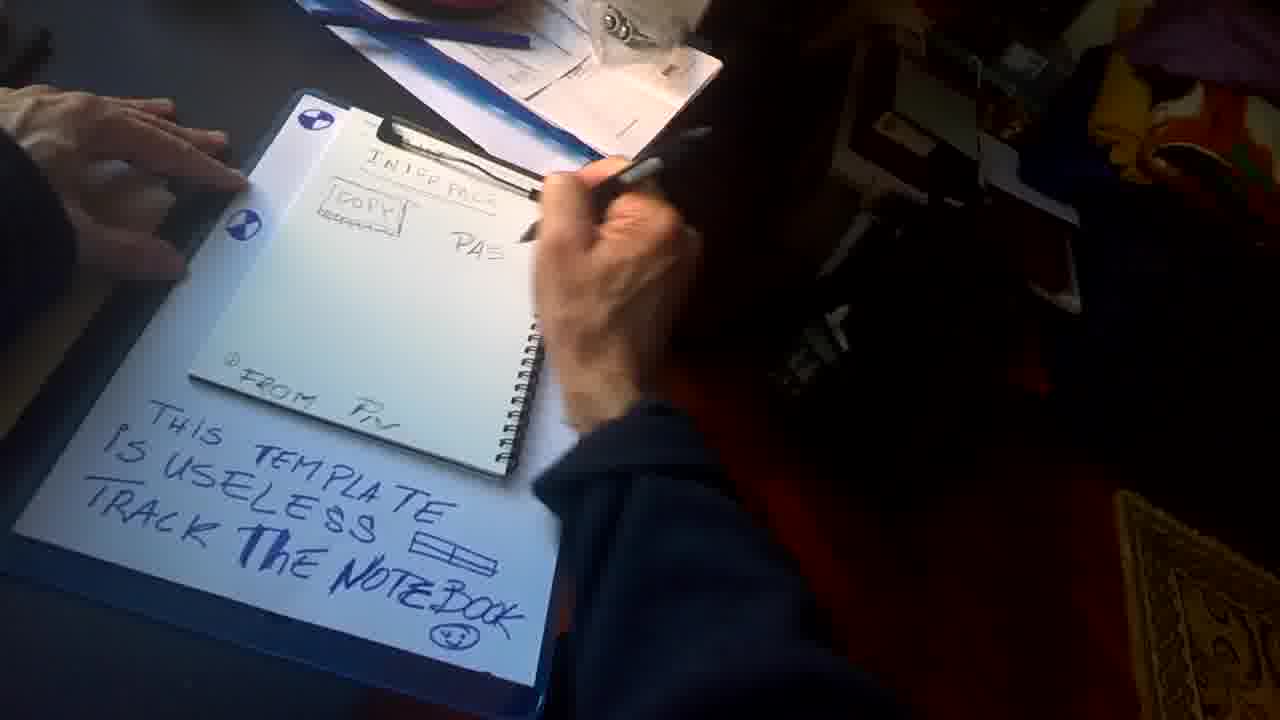 INTERFACE
COPY
PAS
FROM PIN
THIS TEMPLATE
IS USELESS
TRACK THE NOTEBOOK